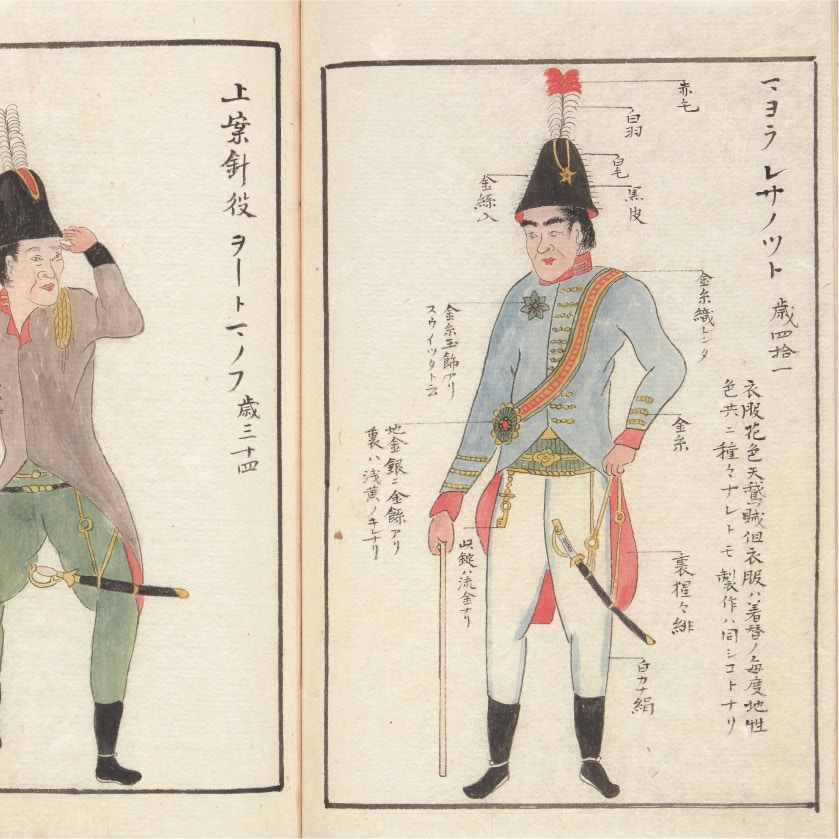 マヨラ レサノツト 歳四拾一
衣服花色天鵞賊但衣服ハ着替ノ毎度地性
色共ニ種々ナレトモ製作ハ同シコトナリ
赤毛
白羽
白毛
黒皮
金絲入
金糸織レンタ
金糸玉飾アリ
スウイツタト云
金糸
地金銀ニ金餙アリ
裏ハ浅黄ノキレナリ
此錠ハ流金ナリ
裏猩々緋
白カナ絹
上案針役 ヲートマノフ 歳三十四